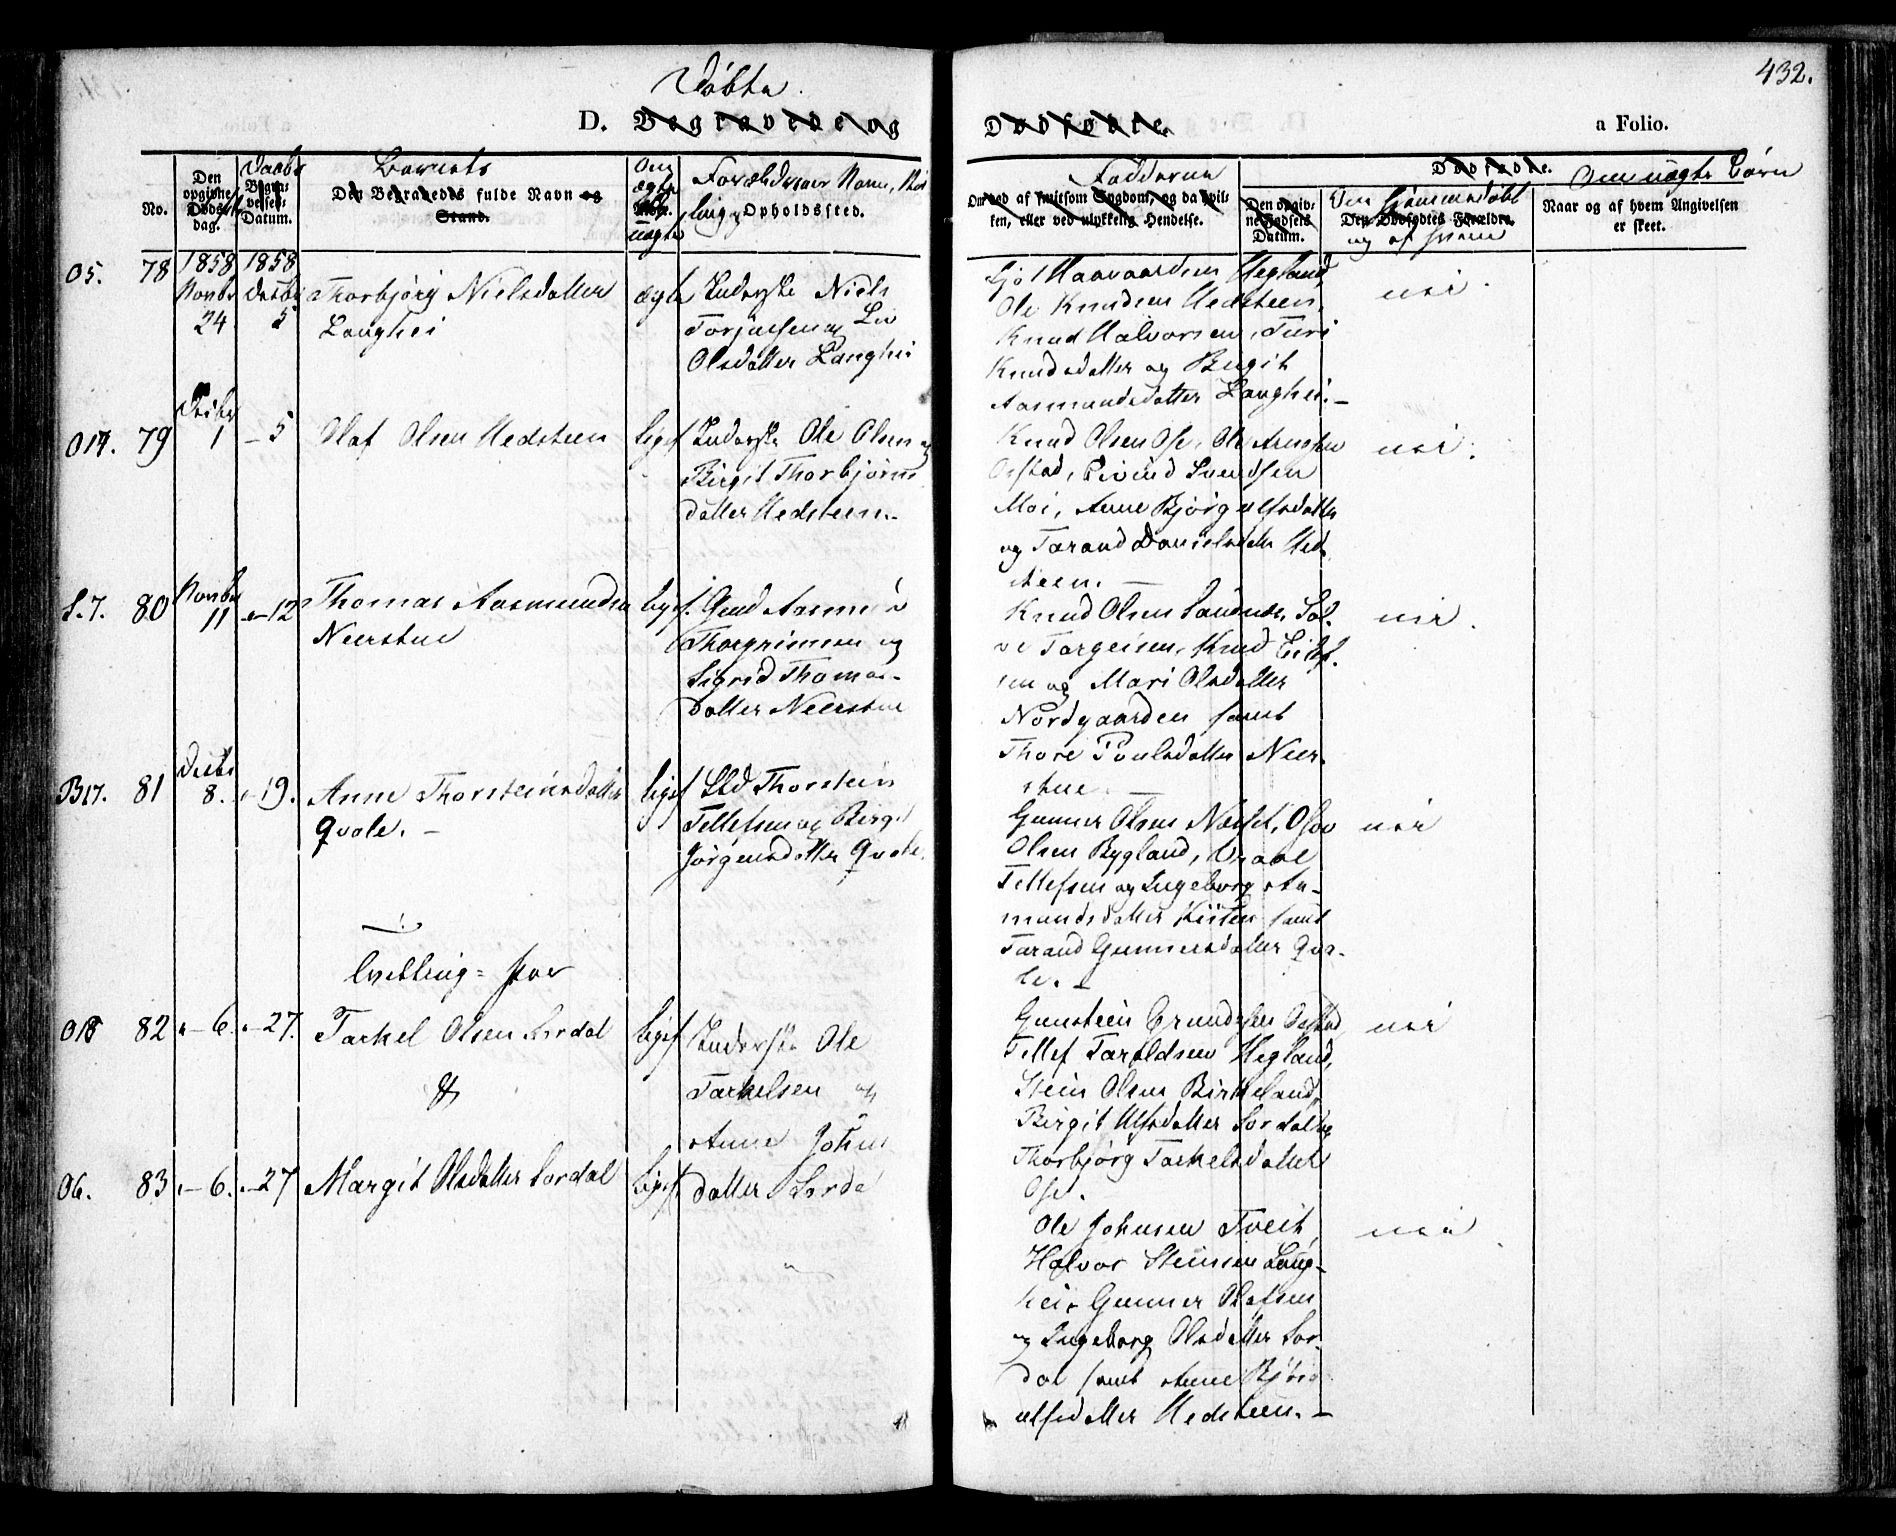 432.
Døbte.
D. Begravede og
Dødfødte.
a Folio.
No.
Den opgivne Døds-dag.
Daabs
Begra-velses-Datum.
Barnets
Den Begravedes fulde Navn og Stand.
Om ægte eller uægte
Forældrenes Navn, Stilling og Opholdssted.
Fadderne
Om død af smitsom Sygdom, og da hvil-
ken, eller ved ulykkelig Hendelse.
Dødfødte.
Om uægte Børn
Den opgiv-ne Fødsels Datum.
Om hjemmedøbt
Den Dødfødtes Forældre.
og af hvem
Naar og af hvem Angivelsen
er skeet.
O5. 78
1858 1858
Novbr Decbr
24 5
Thorbjørg Nielsdatter
Langhei
ægte
Inderste Niels
Torjussen og Liv
Olsdatter Langhei
Haavaardsen Hegland,
Ole Knudsen Hedsteen,
Knud Halvorsen, Turi
Knudsdatter og Birgit
Aasmundsdatter Langhei.—
nei.
O14. 79
Decbr
1 — 5
Olaf Olsen Hedsteen
liges
Inderste Ole Olsen og
Birgit Thorbjørns
datter Hedsteen.—
Knud Olsen Ose, Ole Arnesen
Ovstad, Eivind Svendsen
Moi, Anne Bjørgulfsdatter
og Tarand Danielsdatter Hed
steen.—
nei.
S.7. 80
Novbr
11 — 12
Thomas Aasmundsen
Neerstue
ligs.
Gmd Aasmund
Thorgrimsen og
Sigrid Thomas-
datter Neerstue
Knud Olsen Sandnes, Sal.
ve Targeisen, Knud Eilef.
sen og Mari Olsdatter
Nordgaarden samt
Thore Poulsdatter Neer-
stue.—
nei.
B17. 81
Decbr
8. — 19.
Anne Thorsteinsdatter
Qvale.—
liges
Sld Thorstein
Tellefsen og Birgit
Jørgensdatter Qvale.
Gunner Olsen Næset, Osov
Olsen Bygland,
Tellefsen og Ingeborg Aa-
mundsdatter samt
Tarand Gunnersdatter Qva-
le.—
nei
Tvilling-par
O15 82 — 6. — 27.
Tarkel Olsen Sordal
&
liges
Inderste Ole
Tarkelsen og
Anne Johns
datter Sordal
Gunsteen Ovstad,
Tellef Taraldsen Hegland,
Stein Olsen Birkeland,
Birgit Ulfsdatter Sordal og
Thorbjørg Tarkelsdatter
Ose.
nei
O6. 83 — 6. — 27
Margit Olsdatter Sordal
liges
Ole Johnsen Tveit,
Halvor Steinsen Lang-
hei, Gunner Olafsen
og Ingeborg Olsdatter Sor-
dal samt Anne Bjørg
ulfsdatter Hedsteen.—
nei